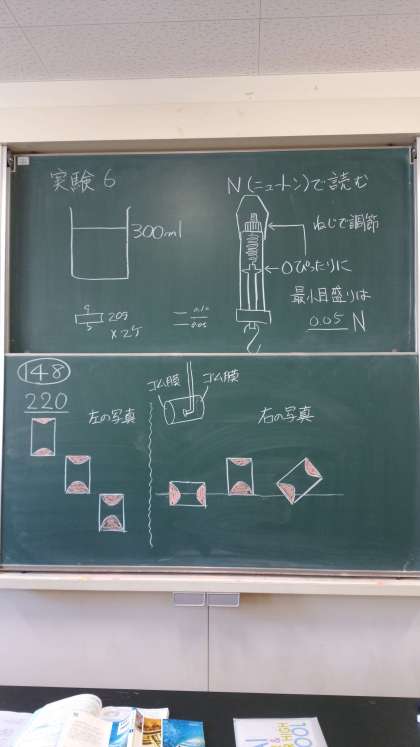 実験6
300ml
20g
×2ケ
0.10
0.05
N(ニュートン)で読む
ねじで調節
←0ぴったりに
最小目盛りは
0.05 N
148
220
左の写真
ゴム膜 ゴム膜
右の写真
100
HIGH